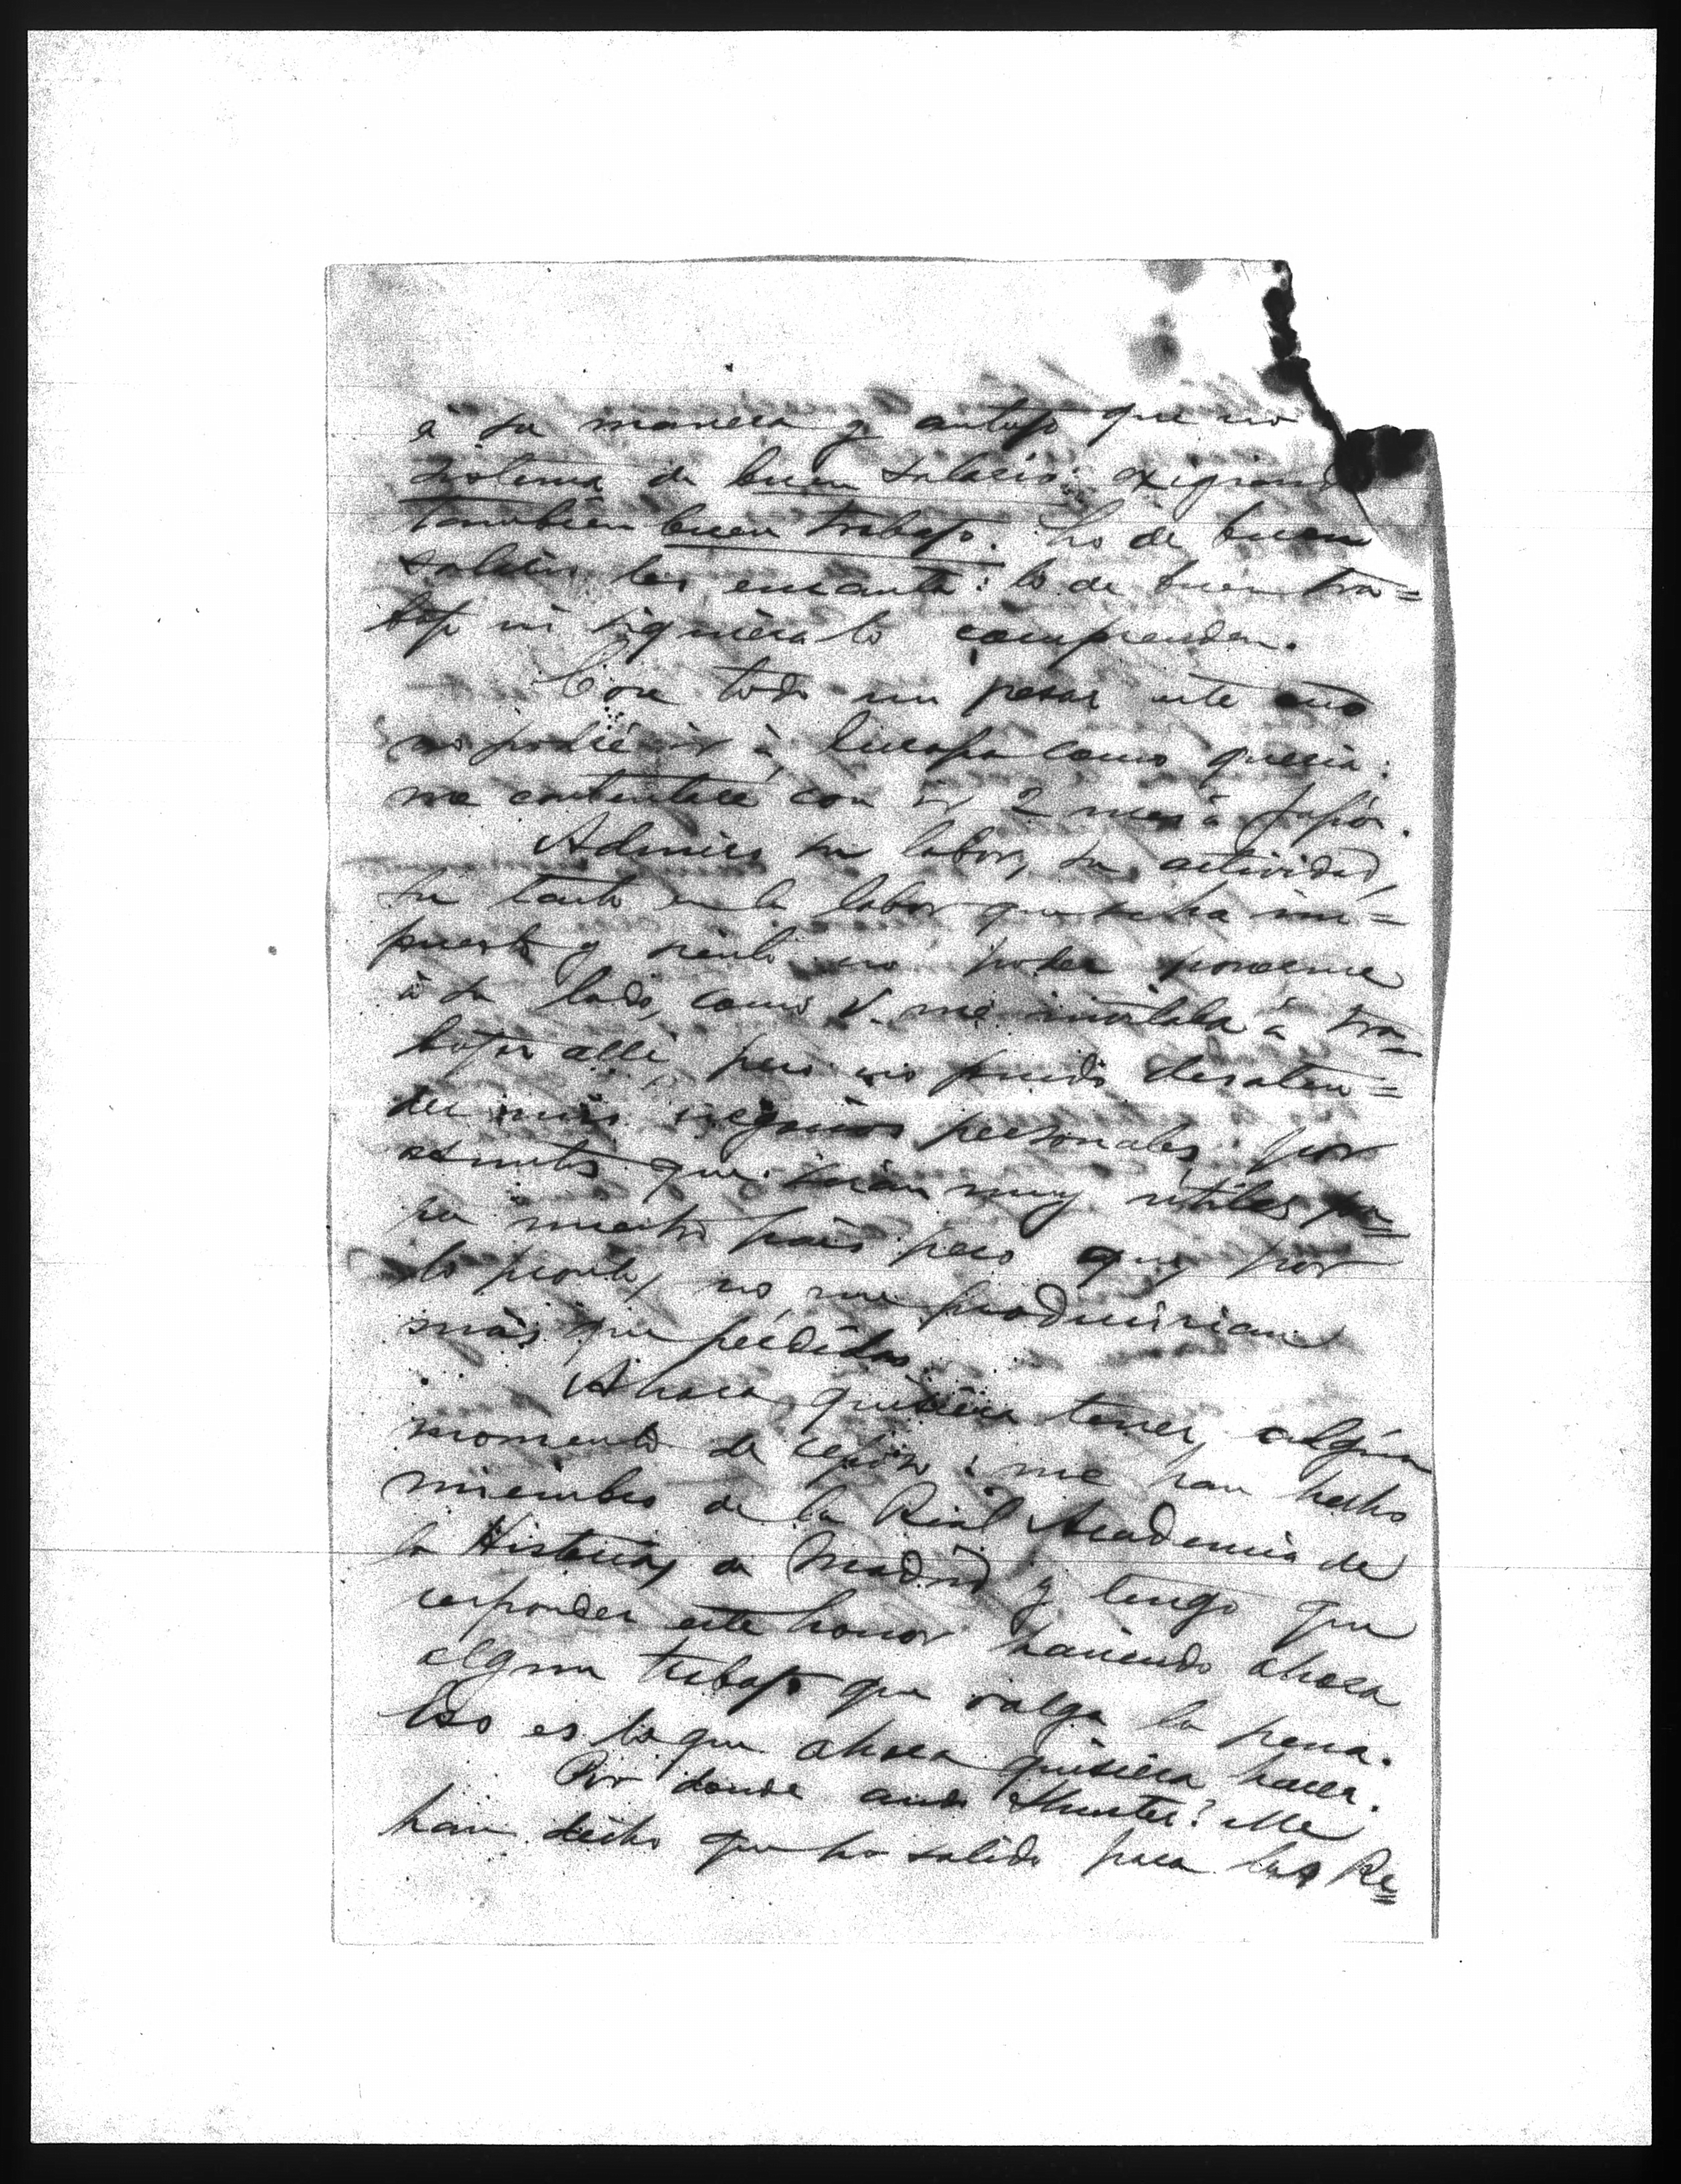 á su manera y antojo que no
sistema de buen salario: exigiend
también buen trabajo. Lo de buen
salario les encanta: lo de buen tra=
bajo ni siquiera lo comprenden.
Con todo mi pesar este año
no podré ir á Europa como quería:
me contentaré con ir 2 mes á Japón.
Admiro su labor, su actividad,
su tanto en la labor que se ha im=
puesto y siento no poder ponerme
á su lado, como V. me invitaba á tra=
bajar allí, pero no puedo desaten=
der mis negocios personales por
asuntos que serían muy utiles pa=
ra nuestro país pero que por
lo pronto, no me producirian
más que perdidas.
Ahora quisiera tener algún
momento de reposo: me han hecho
miembro de la Real Academia de
la Historia de Madrid y tengo que
responder este honor haciendo ahora
algun trabajo que valga la pena.
Eso es lo que ahora quisiera hacer.
Por donde anda Hunter? Me
han dicho que ha salido para las Re=